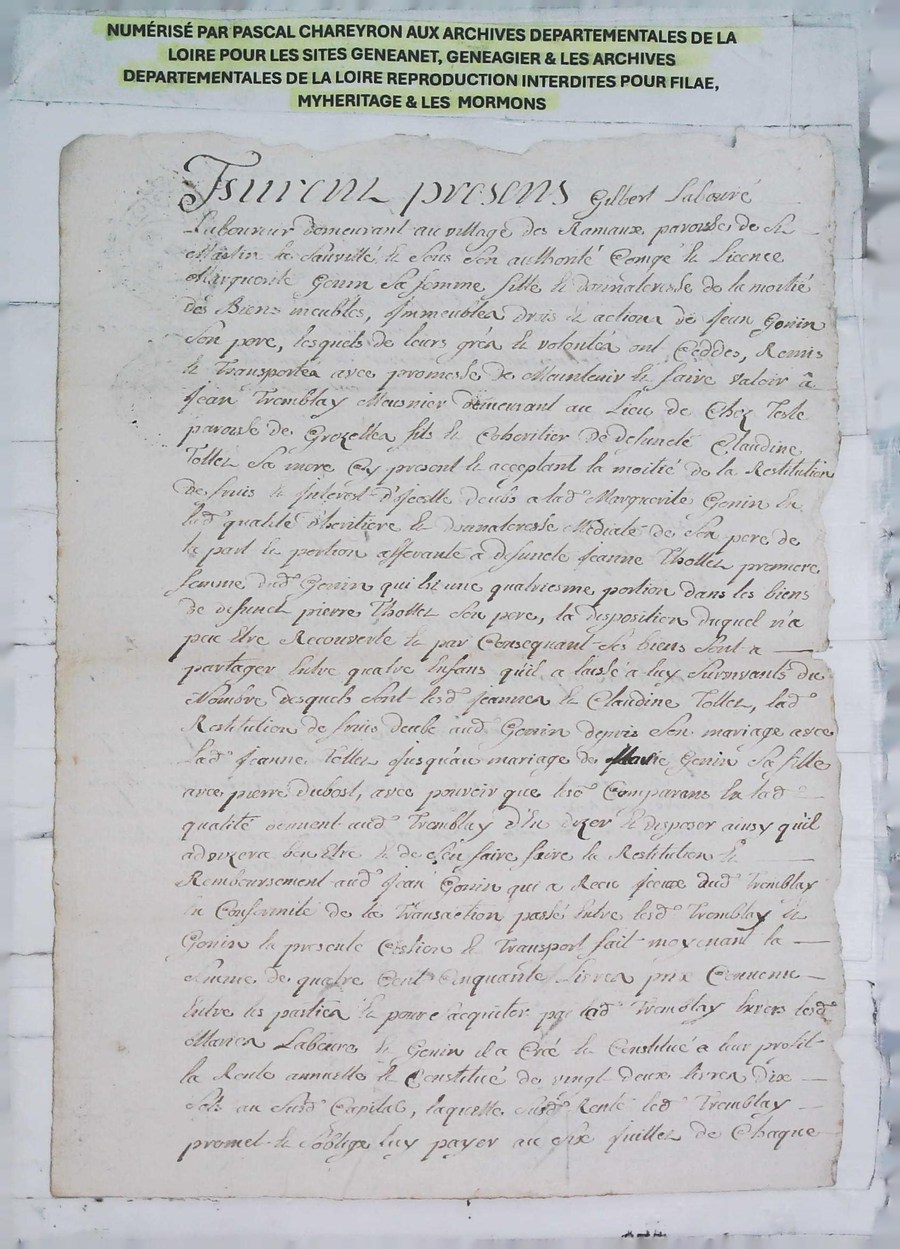 NUMÉRISÉ PAR PASCAL CHAREYRON AUX ARCHIVES DEPARTEMENTALES DE LA
LOIRE POUR LES SITES GENEANET, GENEAGIER & LES ARCHIVES
DEPARTEMENTALES DE LA LOIRE REPRODUCTION INTERDITES POUR FILAE,
MYHERITAGE & LES MORMONS
Furent presens Gilbert Labouré
Laboureur demeurant au village des Ramaux paroisse de St
Martin la Sauvitté et sous son authorité Congé et Licence
Marguerite Gonin sa femme fille et donnateresse de la moitié
des Biens meubles, Immeubles drois et actions de Jean Gonin
son pere, lesquels de leurs grés et volontés ont Ceddés, Remis
et Transportés avec promesse de Maintenir et faire valoir à
Jean Tremblay Meusnier demeurant au Lieu de Chez Teste
paroisse de Grezelles fils et Coheritier de defuncte Claudine
Tollet sa mere Cy present et acceptant la moitié de la Restitution
de fruis et Interest d'Icelle deubs a lad. Marguerite Gonin en
lad. qualité d'heritiere et donnateresse Mediate de son pere de
la part et portion afferante a defuncte Jeanne Thollet premiere
femme dud. Gonin qui est une quatriesme portion dans les biens
de defunct pierre Thollet son pere, la disposition duquel n'a
peu Etre Recouverte et par Consequant ses biens sont a
partager Entre quatre Enfans qu'il a laissé a luy survivants du
Nombre desquels sont lesd. Jeanne et Claudine Tollet, lad.
Restitution de fruis deube aud. Gonin depuis son mariage avec
lad. Jeanne Tollet Jusqu'au mariage de Marie Gonin sa fille
avec pierre Dubost, avec pouvoir que lesd. Comparans En lad.
qualité donnent aud. Tremblay d'En uzer et disposer ainsy qu'il
advizera bon Etre et de s'en faire faire la Restitution et
Remboursement aud. Jean Gonin qui a Receu Iceux dud. Tremblay
en Conformité de la Transaction passé Entre lesd. Tremblay et
Gonin la presente Cession et Transport fait moyenant la
somme de quatre Cent Cinquante Livres prix Convenu
Entre les parties et pour s'acquiter par led. Tremblay Envers lesd.
Mariés Labouré et Gonin il a Créé et Constitué a leur profit
la Rente annuelle et Constitué de vingt deux livres dix
sols au susd. Capital, laquelle susd. Rente led. Tremblay
promet et s'oblige luy payer au six Juillet de Chaque